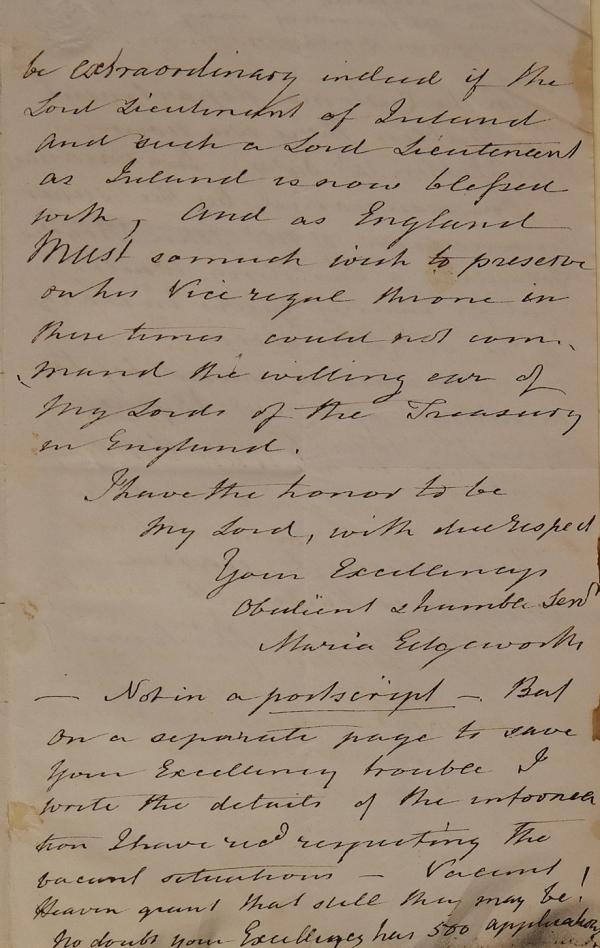 be extraordinary indeed if the
Lord Lieutenant of Ireland
and such a Lord Lieutenant
as Ireland is now blessed
with, and as England
Must so much wish to preserve
on his Viceregal throne in
these times could not com-
-mand the willing ear of
My Lords of the Treasury
in England.
I have the honor to be
My Lord, with due respect
Your Excellencys
Obedient & humble Servt
Maria Edgeworth
— Not in a postscript —. But
on a separate page to save
Your Excellency trouble I
write the details of the informa
tion I have recd respecting the
vacant situations — Vacant
Heaven grant that still they may be!
No doubt your Excellency has 500 applications